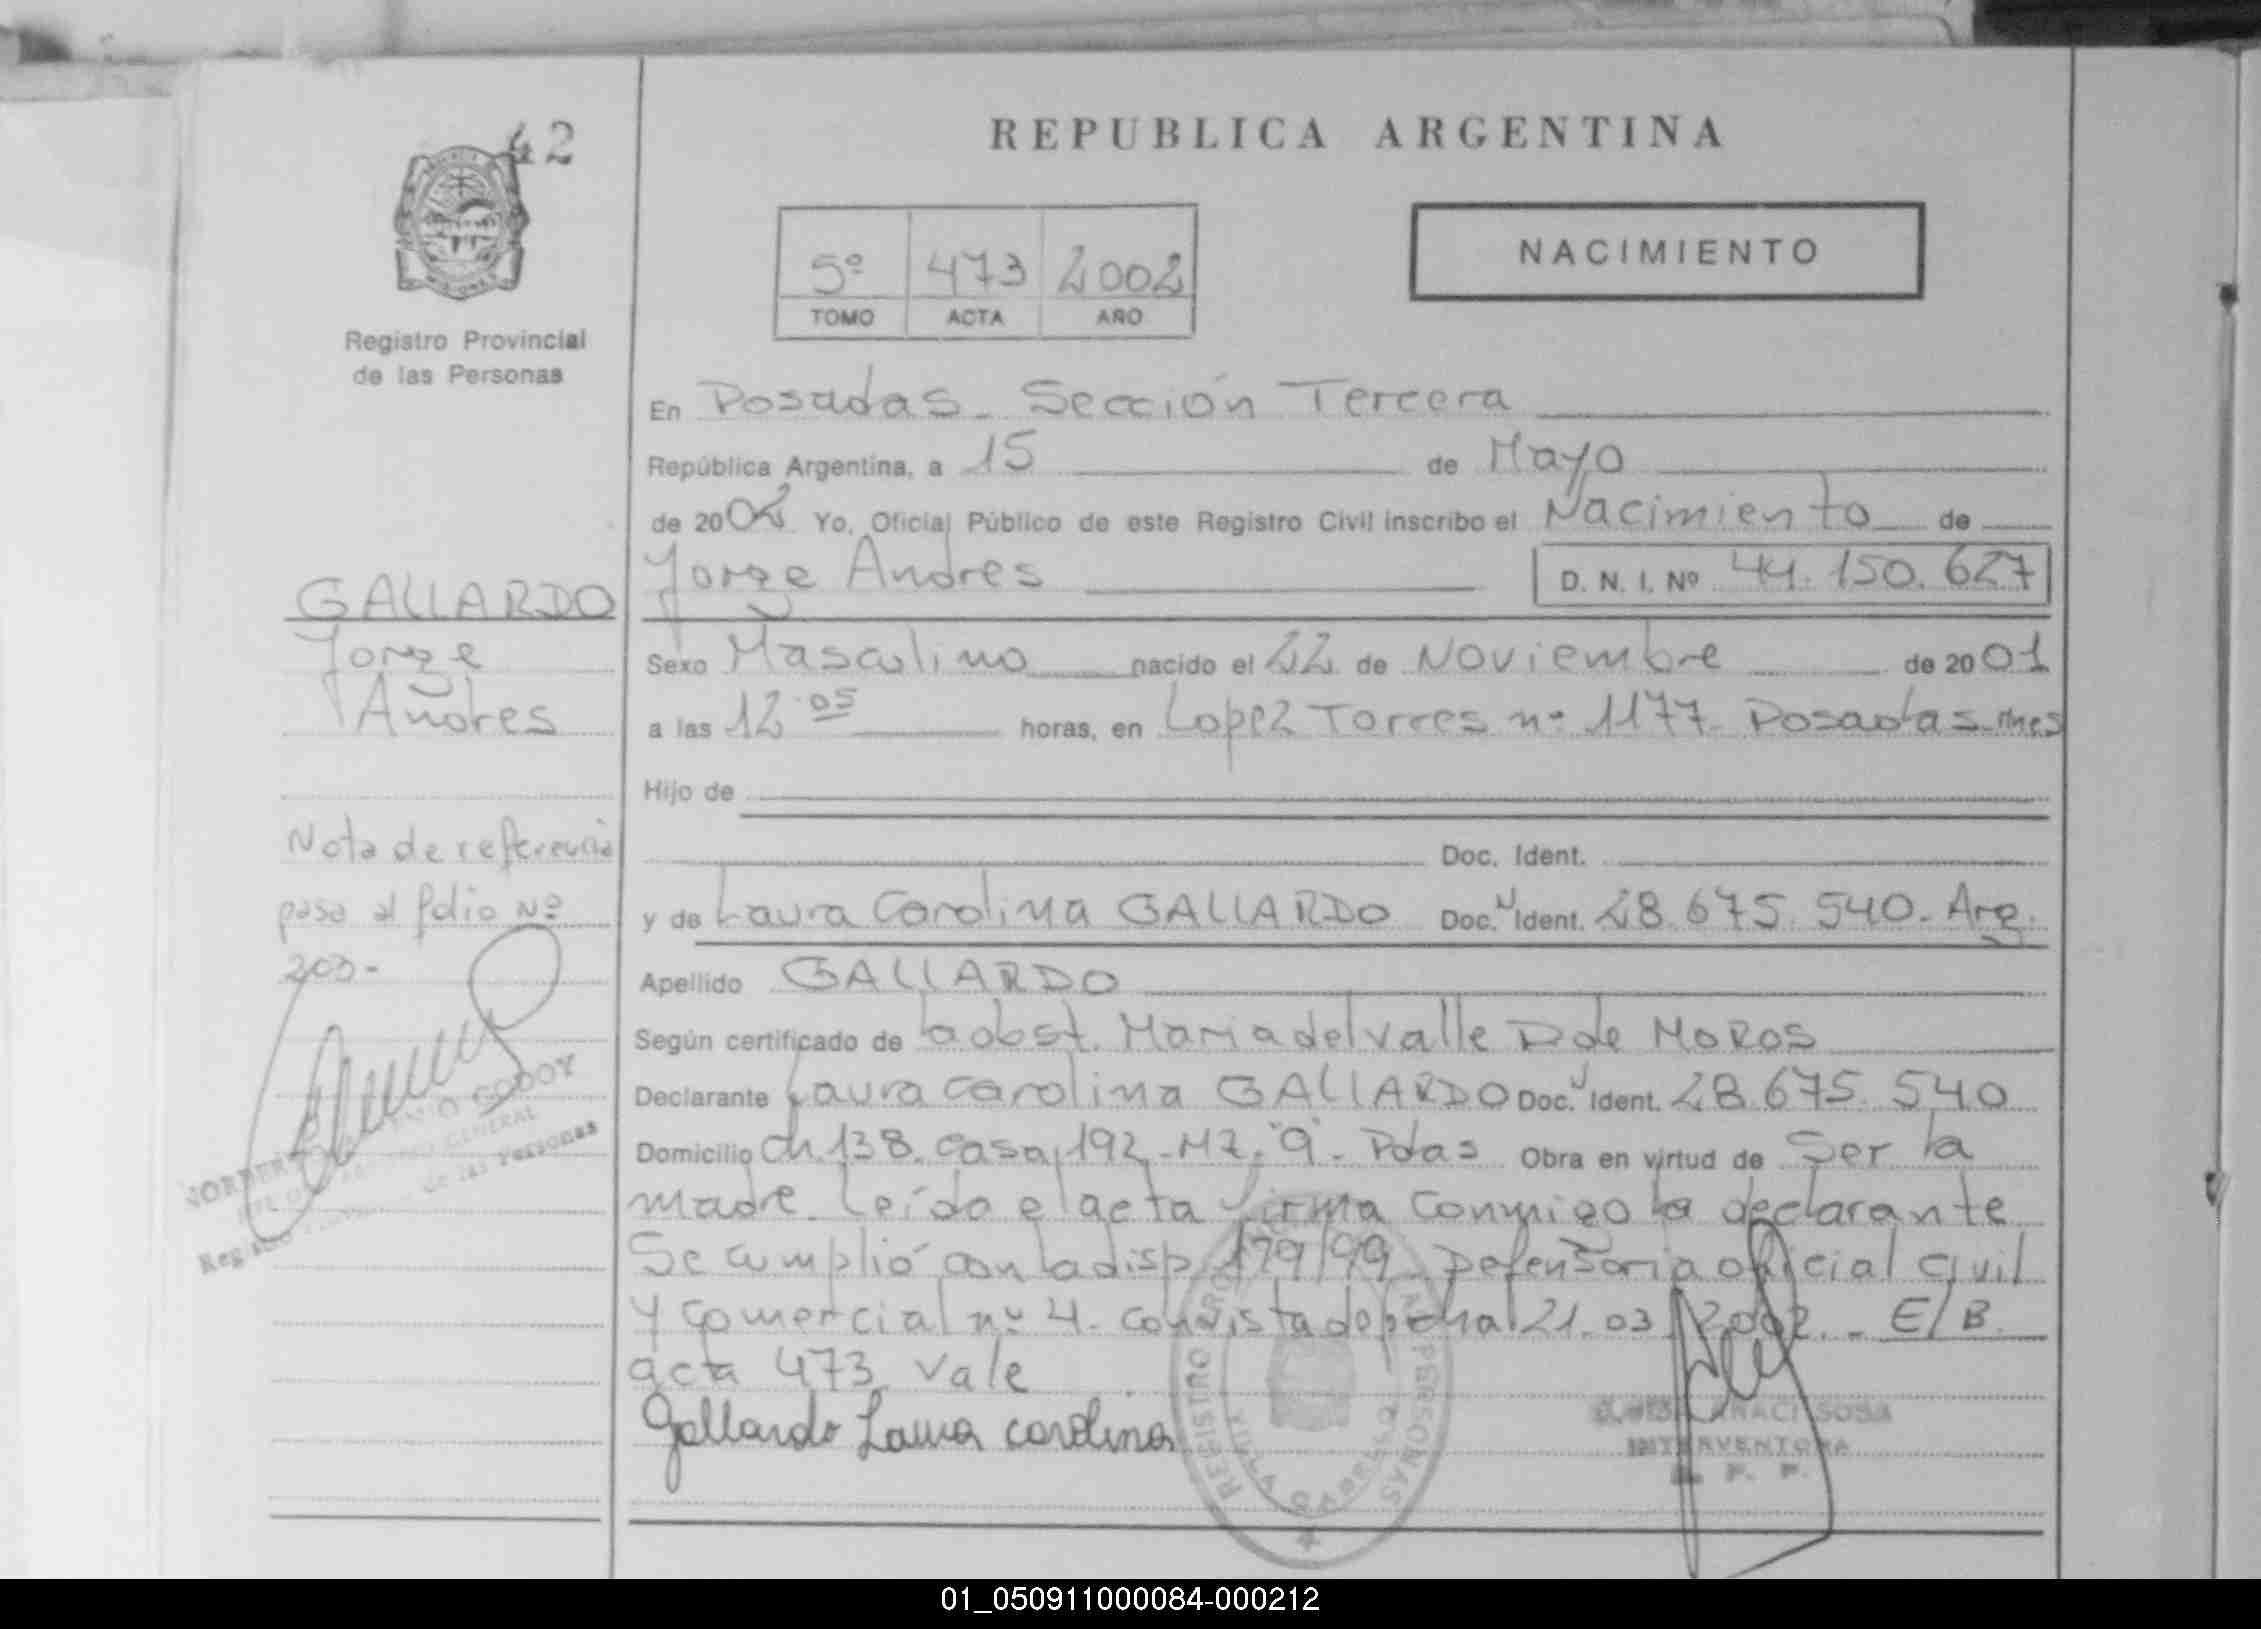 42
REPUBLICA ARGENTINA
5º 473 2002
TOMO ACTA AÑO
NACIMIENTO
Registro Provincial
de las Personas
En Posadas - Sección Tercera
República Argentina, a 15 de Mayo
de 2002 Yo, Oficial Público de este Registro Civil inscribo el Nacimiento de
Jorge Andres D. N. I. Nº 44.150.627
GALLARDO
Jorge
Andres
Sexo Masculino nacido el 22 de Noviembre de 2001
a las 12.05 horas, en Lopez Torres nº 1177 - Posadas - Mnes
Hijo de
Doc. Ident.
Nota de referencia
pasa al folio Nº
203-
y de Laura Carolina GALLARDO Doc. Ident. 28.675.540 - Arg.
Apellido GALLARDO
Según certificado de la obst. Maria del Valle D de MOROS
Declarante Laura Carolina GALLARDO Doc. Ident. 28.675.540
Domicilio Ch. 138. Casa 192 - Mz. "9" - Pdas Obra en virtud de Ser la
madre. Leído el acta firma conmigo la declarante
Se cumplió con la disp 179/99 Defensoria oficial civil
y comercial nº 4 - con vista de fecha 21.03.2002. - E/B.
acta 473 Vale
Gallardo Laura Carolina
GODOY
GENERAL
de las Personas
REGISTRO PERSONAS
SOSA
INTERVENTORA
R. P. P.
01_050911000084-000212